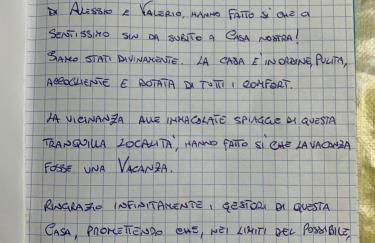 DI ALESSIO E VALERIO, HANNO FATTO SÌ CHE A
SENTISSIMO SIN DA SUBITO A CASA NOSTRA!
SIAMO STATI DIVINAMENTE. LA CASA È IN ORDINE, PULITA,
ACCOGLIENTE E DOTATA DI TUTTI I COMFORT.
LA VICINANZA ALLE IMMACOLATE SPIAGGE DI QUESTA
TRANQUILLA LOCALITÀ, HANNO FATTO SÌ CHE LA VACANZA
FOSSE UNA VACANZA.
RINGRAZIO INFINITAMENTE I GESTORI DI QUESTA
CASA, PROMETTENDO CHE, NEI LIMITI DEL POSSIBILE,